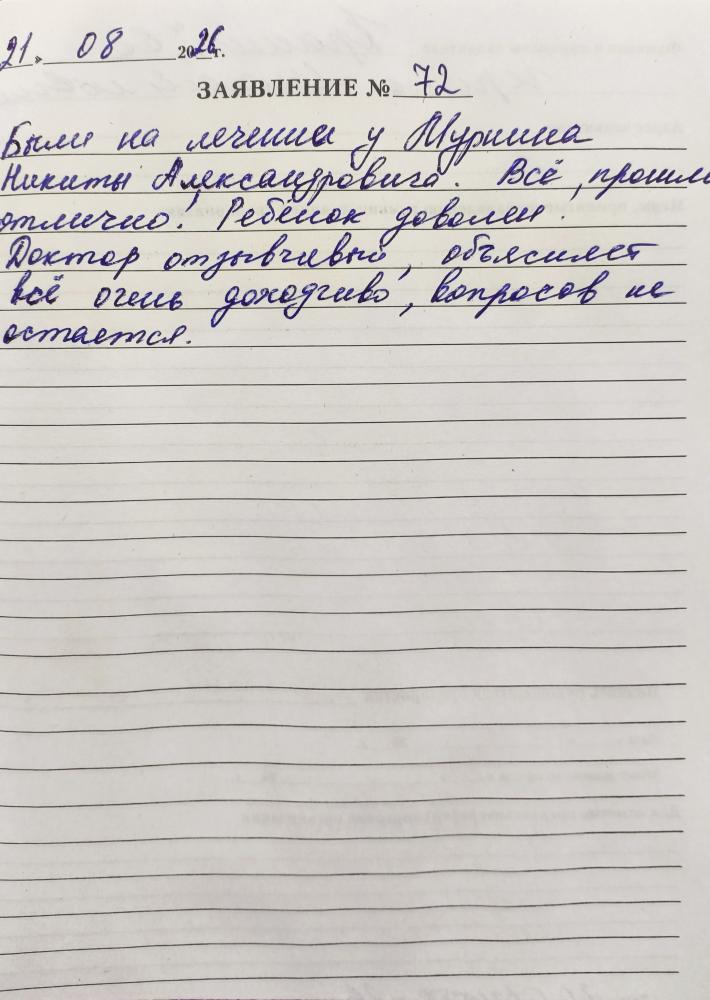 21 » 08 2026 г.
ЗАЯВЛЕНИЕ № 72
Были на лечении у
Никиты Александровича. Всё, прошло
отлично! Ребёнок доволен.
Доктор отзывчивый, объясняет
всё очень доходчиво, вопросов не
остается.